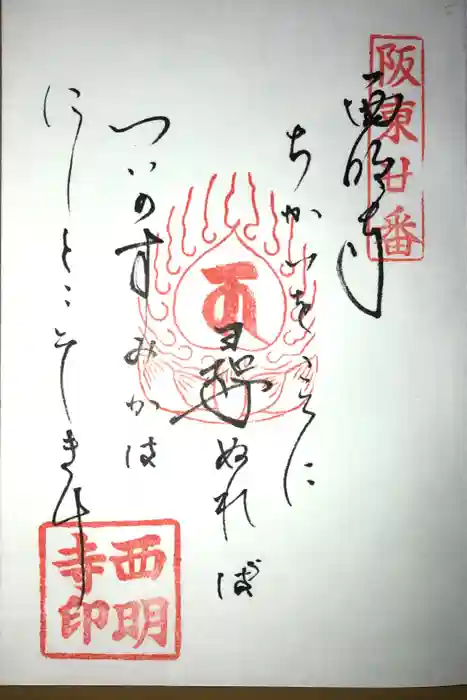 阪東廿番
西明寺
ちかいをここに
尋ぬれば
ついのすみかは
にしとこそきけ
西明寺印